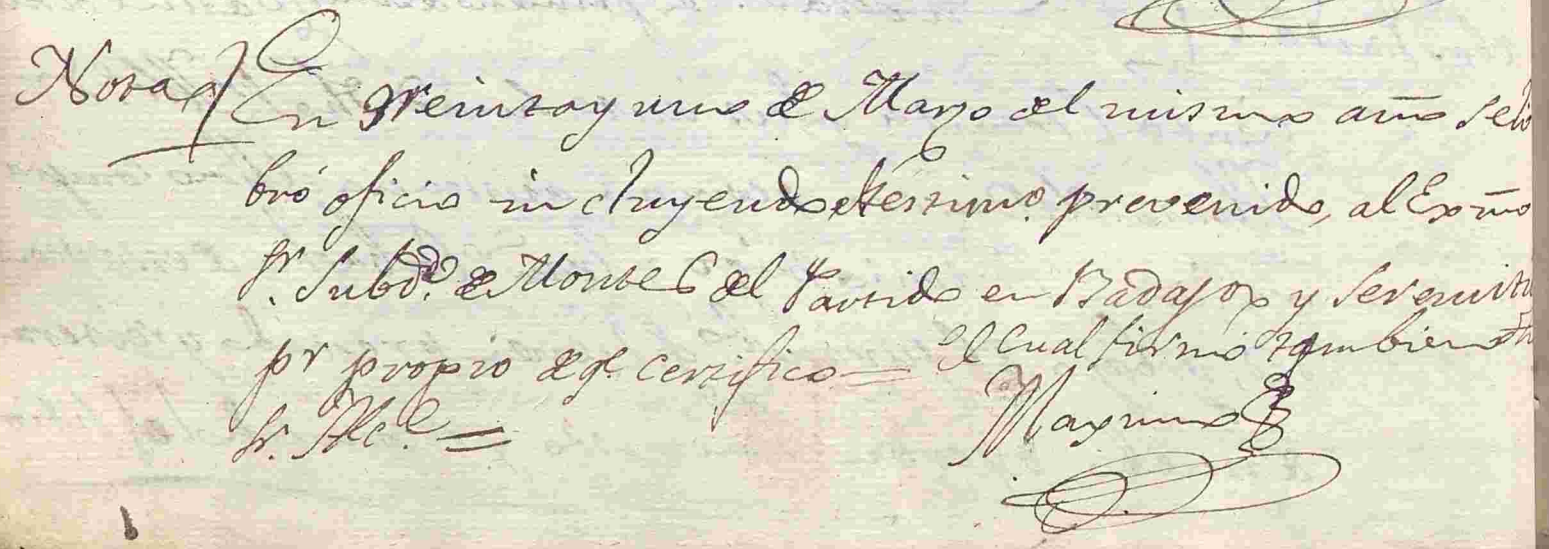 Nota / En treinta y uno de Marzo del mismo año se li
bró oficio incluyendo el testimo. prevenido, al Exmo
Sr. Subdo. de Montes del Partido en Badajox y se remite
pr propio de qe. certifico = el Cual firmo tambien
Sr. Alce. =
Maximo